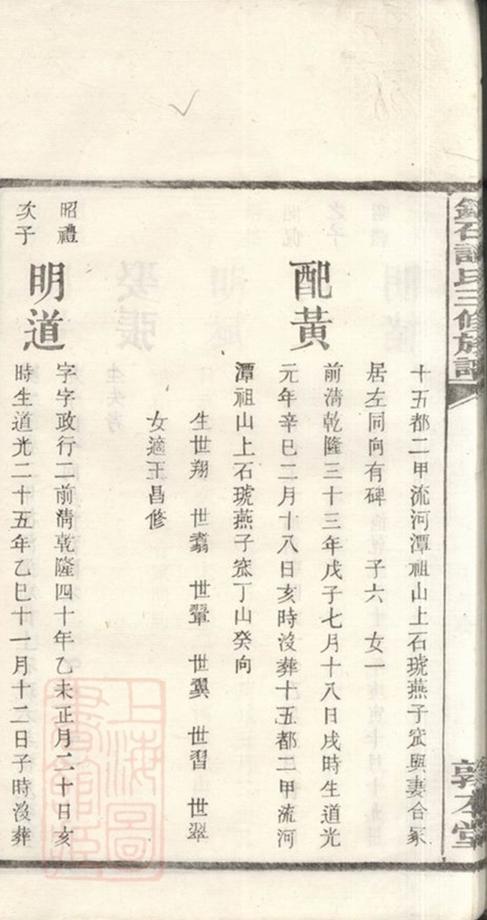 石譚氏三修族譜
敦本堂
十五都二甲流河潭祖山上石琥燕子窊與妻合冢
居左同向有碑 子六 女一
配黃
前清乾隆三十三年戊子七月十八日戌時生道光
元年辛巳二月十八日亥時沒葬十五都二甲流河
潭祖山上石琥燕子窊丁山癸向
生世翔 世翥 世翬 世翼 世習 世翠
女適王昌修
昭禮
次子
明道
字字政行二前清乾隆四十年乙未正月二十日亥
時生道光二十五年乙巳十一月十二日子時沒葬
上海圖
書館藏